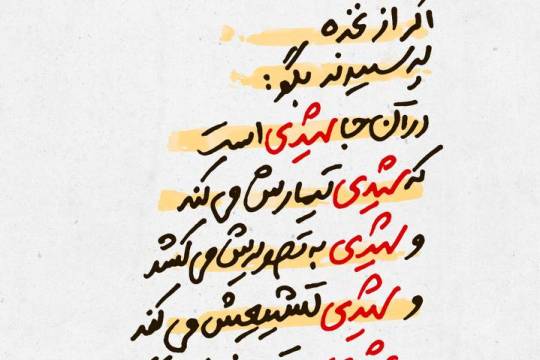 اگر از غزه
پرسیدند بگو:
در آن جا شهیدی است
که شهیدی تیمارش می کند
و شهیدی به تصویرش می کشد
و شهیدی تشییعش می کند